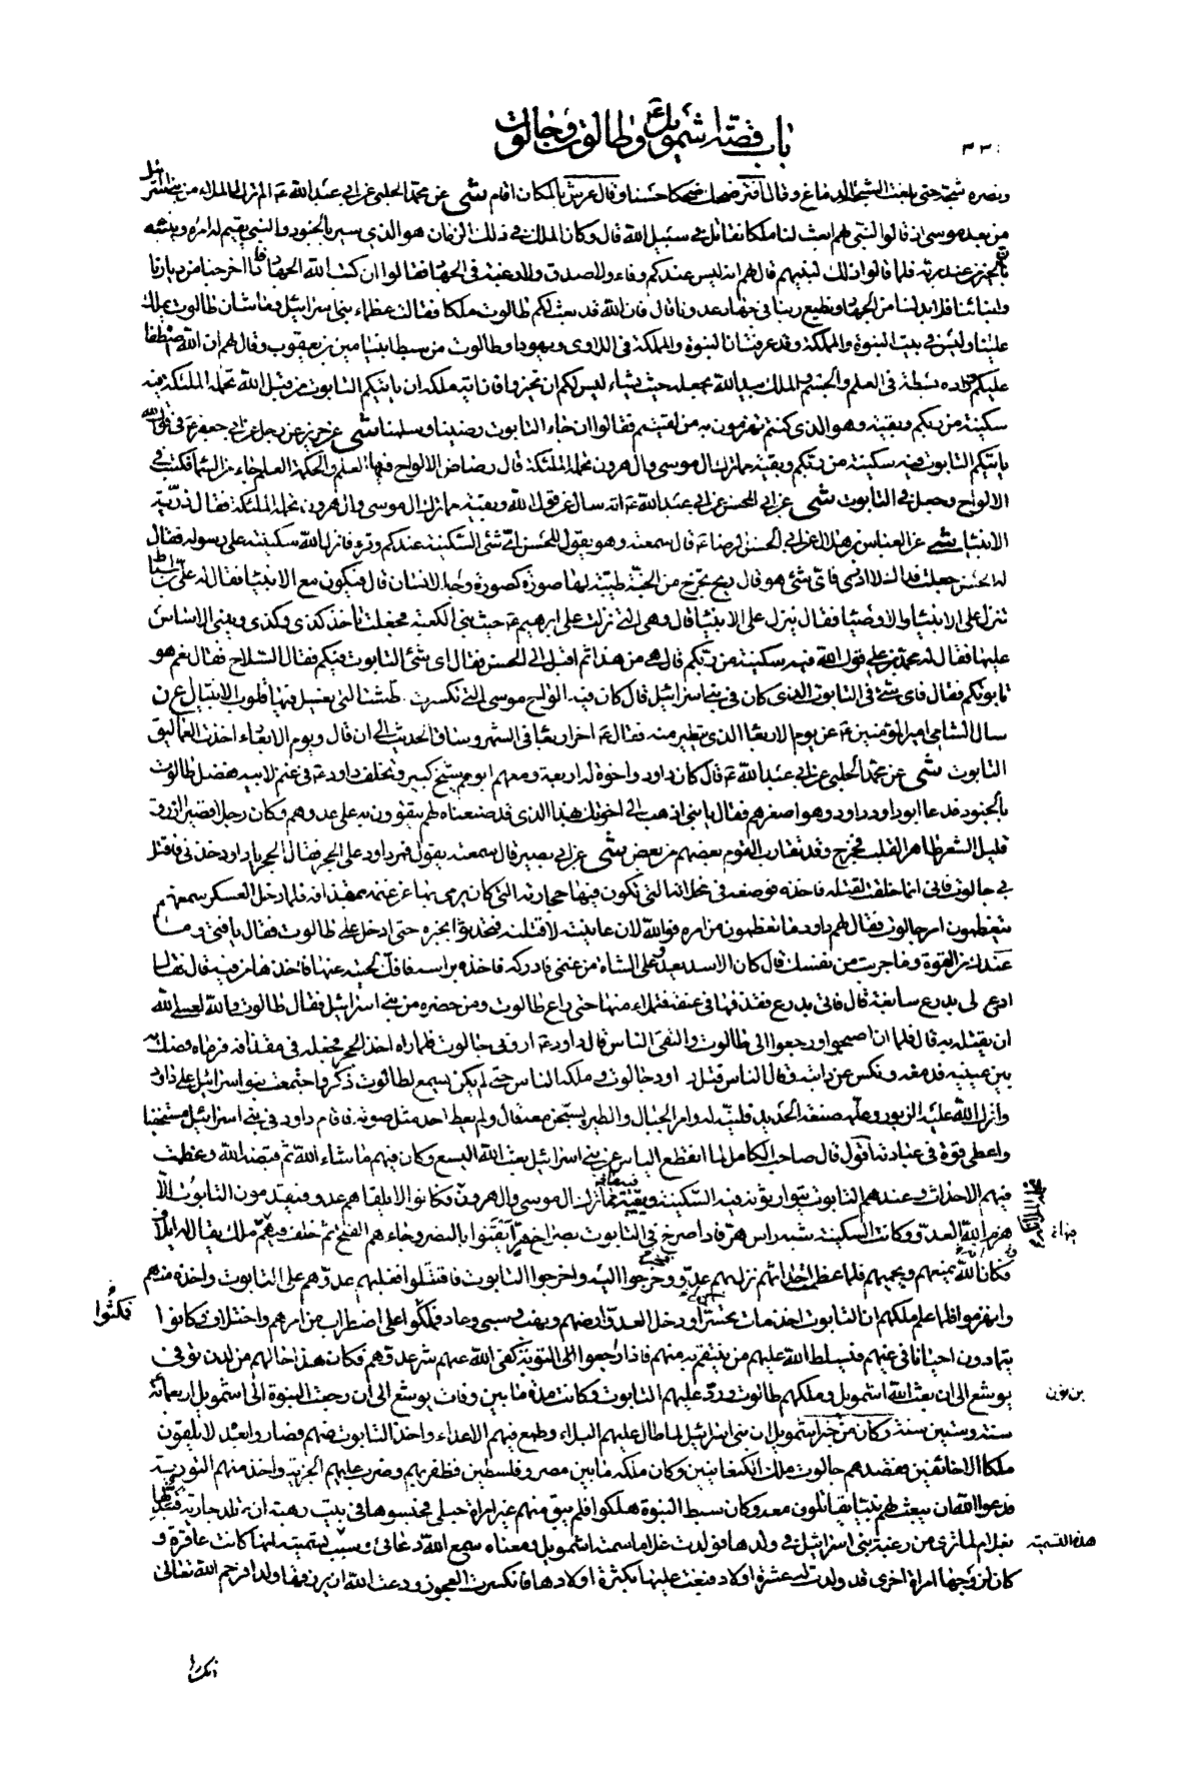 باب قصة اشمويل ع وطالوت وجالوت
٣٣٠
ونصره شجه حتى بلغت الشجة الدماغ وقال افتر ضحك ضحكا حسنا وقال عرش بالمكان اقام شى عن محمد الحلبى عن ابى عبد الله ع الم تر الى الملاء من بنى اسرائيل
من بعد موسى اذ قالوا لنبى لهم ابعث لنا ملكا نقاتل فى سبيل الله قال وكان الملك فى ذلك الزمان هو الذى يسير بالجنود والنبى يقيم له امره وينبئه
بالخبر من عند ربه فلما قالوا ذلك لنبيهم قال لهم انه ليس عندكم وفاء ولا صدق ولا رغبة فى الجهاد فقالوا ان كتب الله الجهاد فاذا اخرجنا من ديارنا
وابنائنا فلا بد لنا من الجهاد ونطيع ربنا فى جهاد عدونا قال فان الله قد بعث لكم طالوت ملكا فقالت عظماء بنى اسرائيل وما شان طالوت يملك
علينا وليس فى بيت النبوة والمملكة وقد عرفت ان النبوة والمملكة فى اللاوى ويهودا وطالوت من سبط ابنيامين بن يعقوب فقال لهم ان الله اصطفاه
عليكم وزاده بسطة فى العلم والجسم والملك بيد الله يجعله حيث يشاء ليس لكم ان تختاروا وان اية ملكه ان ياتيكم التابوت من قبل الله تحمله الملئكة فيه
سكينة من ربكم وبقية وهو الذى كنتم تهزمون به من لقيتم فقالوا ان جاء التابوت رضينا وسلمنا شى عن حريز عن رجل عن ابى جعفر ع فى قول الله
ياتيكم التابوت فيه سكينة من ربكم وبقية مما ترك ال موسى وال هرون تحمله الملئكة قال رضاض الالواح فيها العلم والحكمة العلم جاء من السماء فكتب فى
الالواح وجعل فى التابوت شى عن ابى المحسن عن ابى عبد الله ع انه سال عن قول الله وبقية مما ترك ال موسى وال هرون تحمله الملئكة فقال ذرية
الانبياء شى عن العباس بن هلال عن ابى الحسن الرضا ع قال سمعته وهو يقول للحسن اى شئ السكينة عندكم وقرء فانزل الله سكينته على رسوله فقال
له الحسن جعلت فداك لا ادرى فاى شئ هو قال ريح تخرج من الجنة طيبة لها صورة كصورة وجه الانسان قال فيكون مع الانبياء فقال له على بن اسباط
تنزل على الانبياء والاوصياء فقال تنزل على الانبياء قال وهى التى نزلت على ابرهيم ع حيث بنى الكعبة فجعلت تاخذ كذى وكذى وبنى الاساس
عليها فقال له محمد بن على قول الله فيه سكينة من ربكم قال هى من هذا ثم اقبل الى الحسن فقال اى شئ التابوت فيكم فقال السلاح فقال نعم هو
تابوتكم فقال فاى شئ فى التابوت الذى كان فى بنى اسرائيل قال كان فيه الواح موسى التى تكسرت والطشت التى يغسل فيها قلوب الانبياء ع ن
سال الشامى امير المؤمنين ع عن يوم الاربعاء الذى يتطير منه فقال ع اخر اربعاء فى الشهر وساق الحديث الى ان قال ويوم الاربعاء اخذت العماليق
التابوت شى عن محمد الحلبى عن ابى عبد الله ع قال كان داود واخوة له اربعة ومعهم ابوهم شيخ كبير وتخلف داود ع فى غنم لابيه ففصل طالوت
بالجنود فدعا ابو داود داود وهو اصغرهم فقال يا بنى اذهب الى اخوتك بهذا الذى قد صنعناه لهم يتقوون به على عدوهم وكان رجلا قصيرا ازرق
قليل الشعر طاهر القلب فخرج وقد تقارب القوم بعضهم من بعض شى عن ابى بصير قال سمعته يقول فمر داود على الحجر فقال الحجر يا داود خذنى فاقتل
بى جالوت فانى انما خلقت لقتله فاخذه فوضعه فى مخلاته التى تكون فيها حجارته التى كان يرمى بها عن غنمه بمقذافه فلما دخل العسكر سمعهم
يتعظمون امر جالوت فقال لهم داود ما تعظمون من امره فوالله لان عاينته لاقتلنه فتحدثوا بخبره حتى ادخل على طالوت فقال يا فتى وما
عندك من القوة وما جربت من نفسك قال كان الاسد يعدو على الشاة من غنمى فادركه فاخذه براسه فافك لحييه عنها فاخذها من فيه قال فقال
ادعى لى بدرع سابغة قال فاتى بدرع فقذفها فى عنقه فتملاء منها حتى راع طالوت ومن حضره من بنى اسرائيل فقال طالوت والله لعسى الله
ان يقتله به قال فلما ان اصبحوا ورجعوا الى طالوت والتقى الناس قال داود ع ارونى جالوت فلما راه اخذ الحجر فجعله فى مقذافه فرماه فصك به
بين عينيه فدمغه ونكس عن دابته وقال الناس قتل داود جالوت وملكه الناس حتى لم يكن يسمع لطالوت ذكر واجتمعت بنو اسرائيل على داود
وانزل الله عليه الزبور وعلمه صنعة الحديد فلينه له وامر الجبال والطير يسبحن معه قال ولم يعط احد مثل صوته فاقام داود فى بنى اسرائيل مستخفيا
واعطى قوة فى عبادته اقول قال صاحب الكامل لما انقطع الياس عن بنى اسرائيل بعث الله اليسع وكان فيهم ما شاء الله ثم قبضه الله وعظمت
فيهم الاحداث وعندهم التابوت يتوارثونه فيه السكينة وبقية مما ترك ال موسى وال هرون فكانوا لا يلقاهم عدو فيقدمون التابوت الا
هزم الله العدو وكانت السكينة شبه راس هر فاذا صرخ فى التابوت بصراخ هر ايقنوا بالنصر وجاءهم الفتح ثم خلف فيهم ملك يقال له ايلاف
فكان الله يمنعهم ويحميهم فلما عظم احداثهم نزل بهم عدو وخرجوا اليه واخرجوا التابوت فاقتتلوا فغلبهم عدوهم على التابوت واخذه منهم
وانهزموا فلما علم ملكهم ان التابوت اخذ مات تحسرا ودخل العدو ارضهم ونهب وسبى وعاد فمكثوا على اضطراب من امرهم واختلاف وكانوا
فمكثوا
يتمادون احيانا فى غيهم فيسلط الله عليهم من ينتقم به منهم فاذا راجعوا الى التوبة كفى الله عنهم شر عدوهم فكان هذا حالهم من لدن توفى
يوشع الى ان بعث الله اشمويل وملكهم طالوت ورد عليهم التابوت وكانت مدة ما بين وفات يوشع الى ان رجعت النبوة الى اشمويل اربعمائة
بن نون
سنة وستين سنة وكان من خبر اشمويل ان بنى اسرائيل لما طال عليهم البلاء وطمع فيهم الاعداء واخذ التابوت منهم فصاروا بعده لا يلقون
ملكا الا خائفين فقصدهم جالوت ملك الكنعانيين وكان ملكه ما بين مصر وفلسطين فظفر بهم وضرب عليهم الجزية واخذ منهم التورية
فدعوا الله ان يبعث لهم نبيا يقاتلون معه وكان سبط النبوة هلكوا فلم يبق منهم غير امراة حبلى فحبسوها فى بيت رهبة ان تلد جارية فتبدلها
بغلام لما ترى من رغبة بنى اسرائيل فى ولدها فولدت غلاما سمته اشمويل ومعناه سمع الله دعائى وسبب هذه التسمية انها كانت عاقرة و
هذه التسمية
كان لزوجها امراة اخرى قد ولدت له عشرة اولاد فبغت عليها بكثرة اولادها فانكسرت العجوز ودعت الله ان يرزقها ولدا فرحم الله تعالى